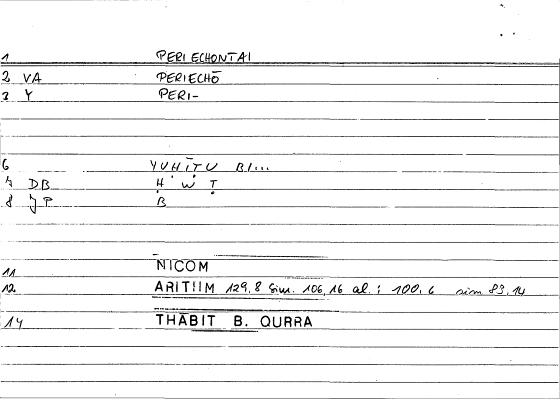 1 PERIECHONTAI
2 VA PERIECHŌ
3 Y PERI-
6 YUḤĪṬU BI...
7 DB Ḥ W Ṭ
8 JP B
11 NICOM
12 ARITIIM 129,8 sim. 106,16 al.; 100,6 sim 83,14
14 THĀBIT B. QURRA